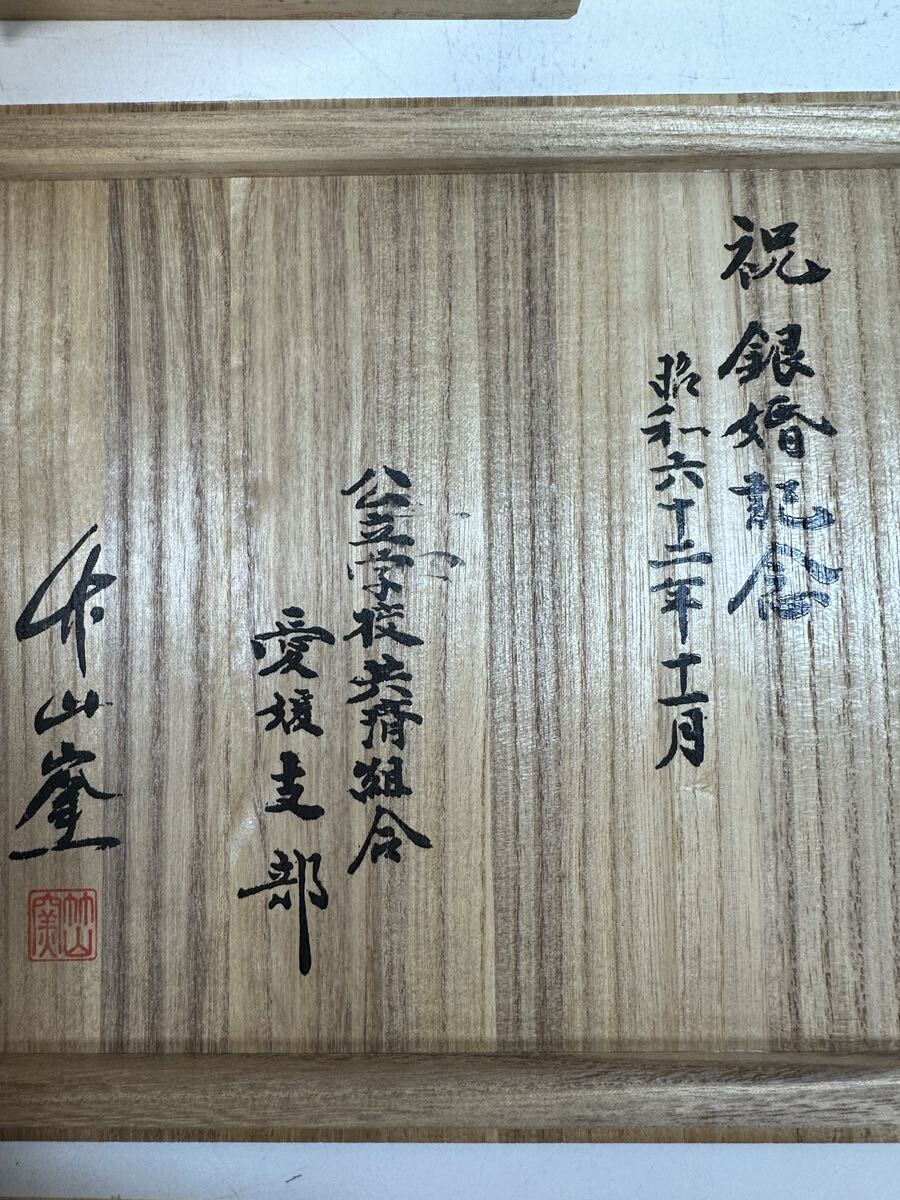 祝 銀婚記念
昭和六十二年十一月
公立学校共済組合
愛媛支部
竹山窯
竹山窯